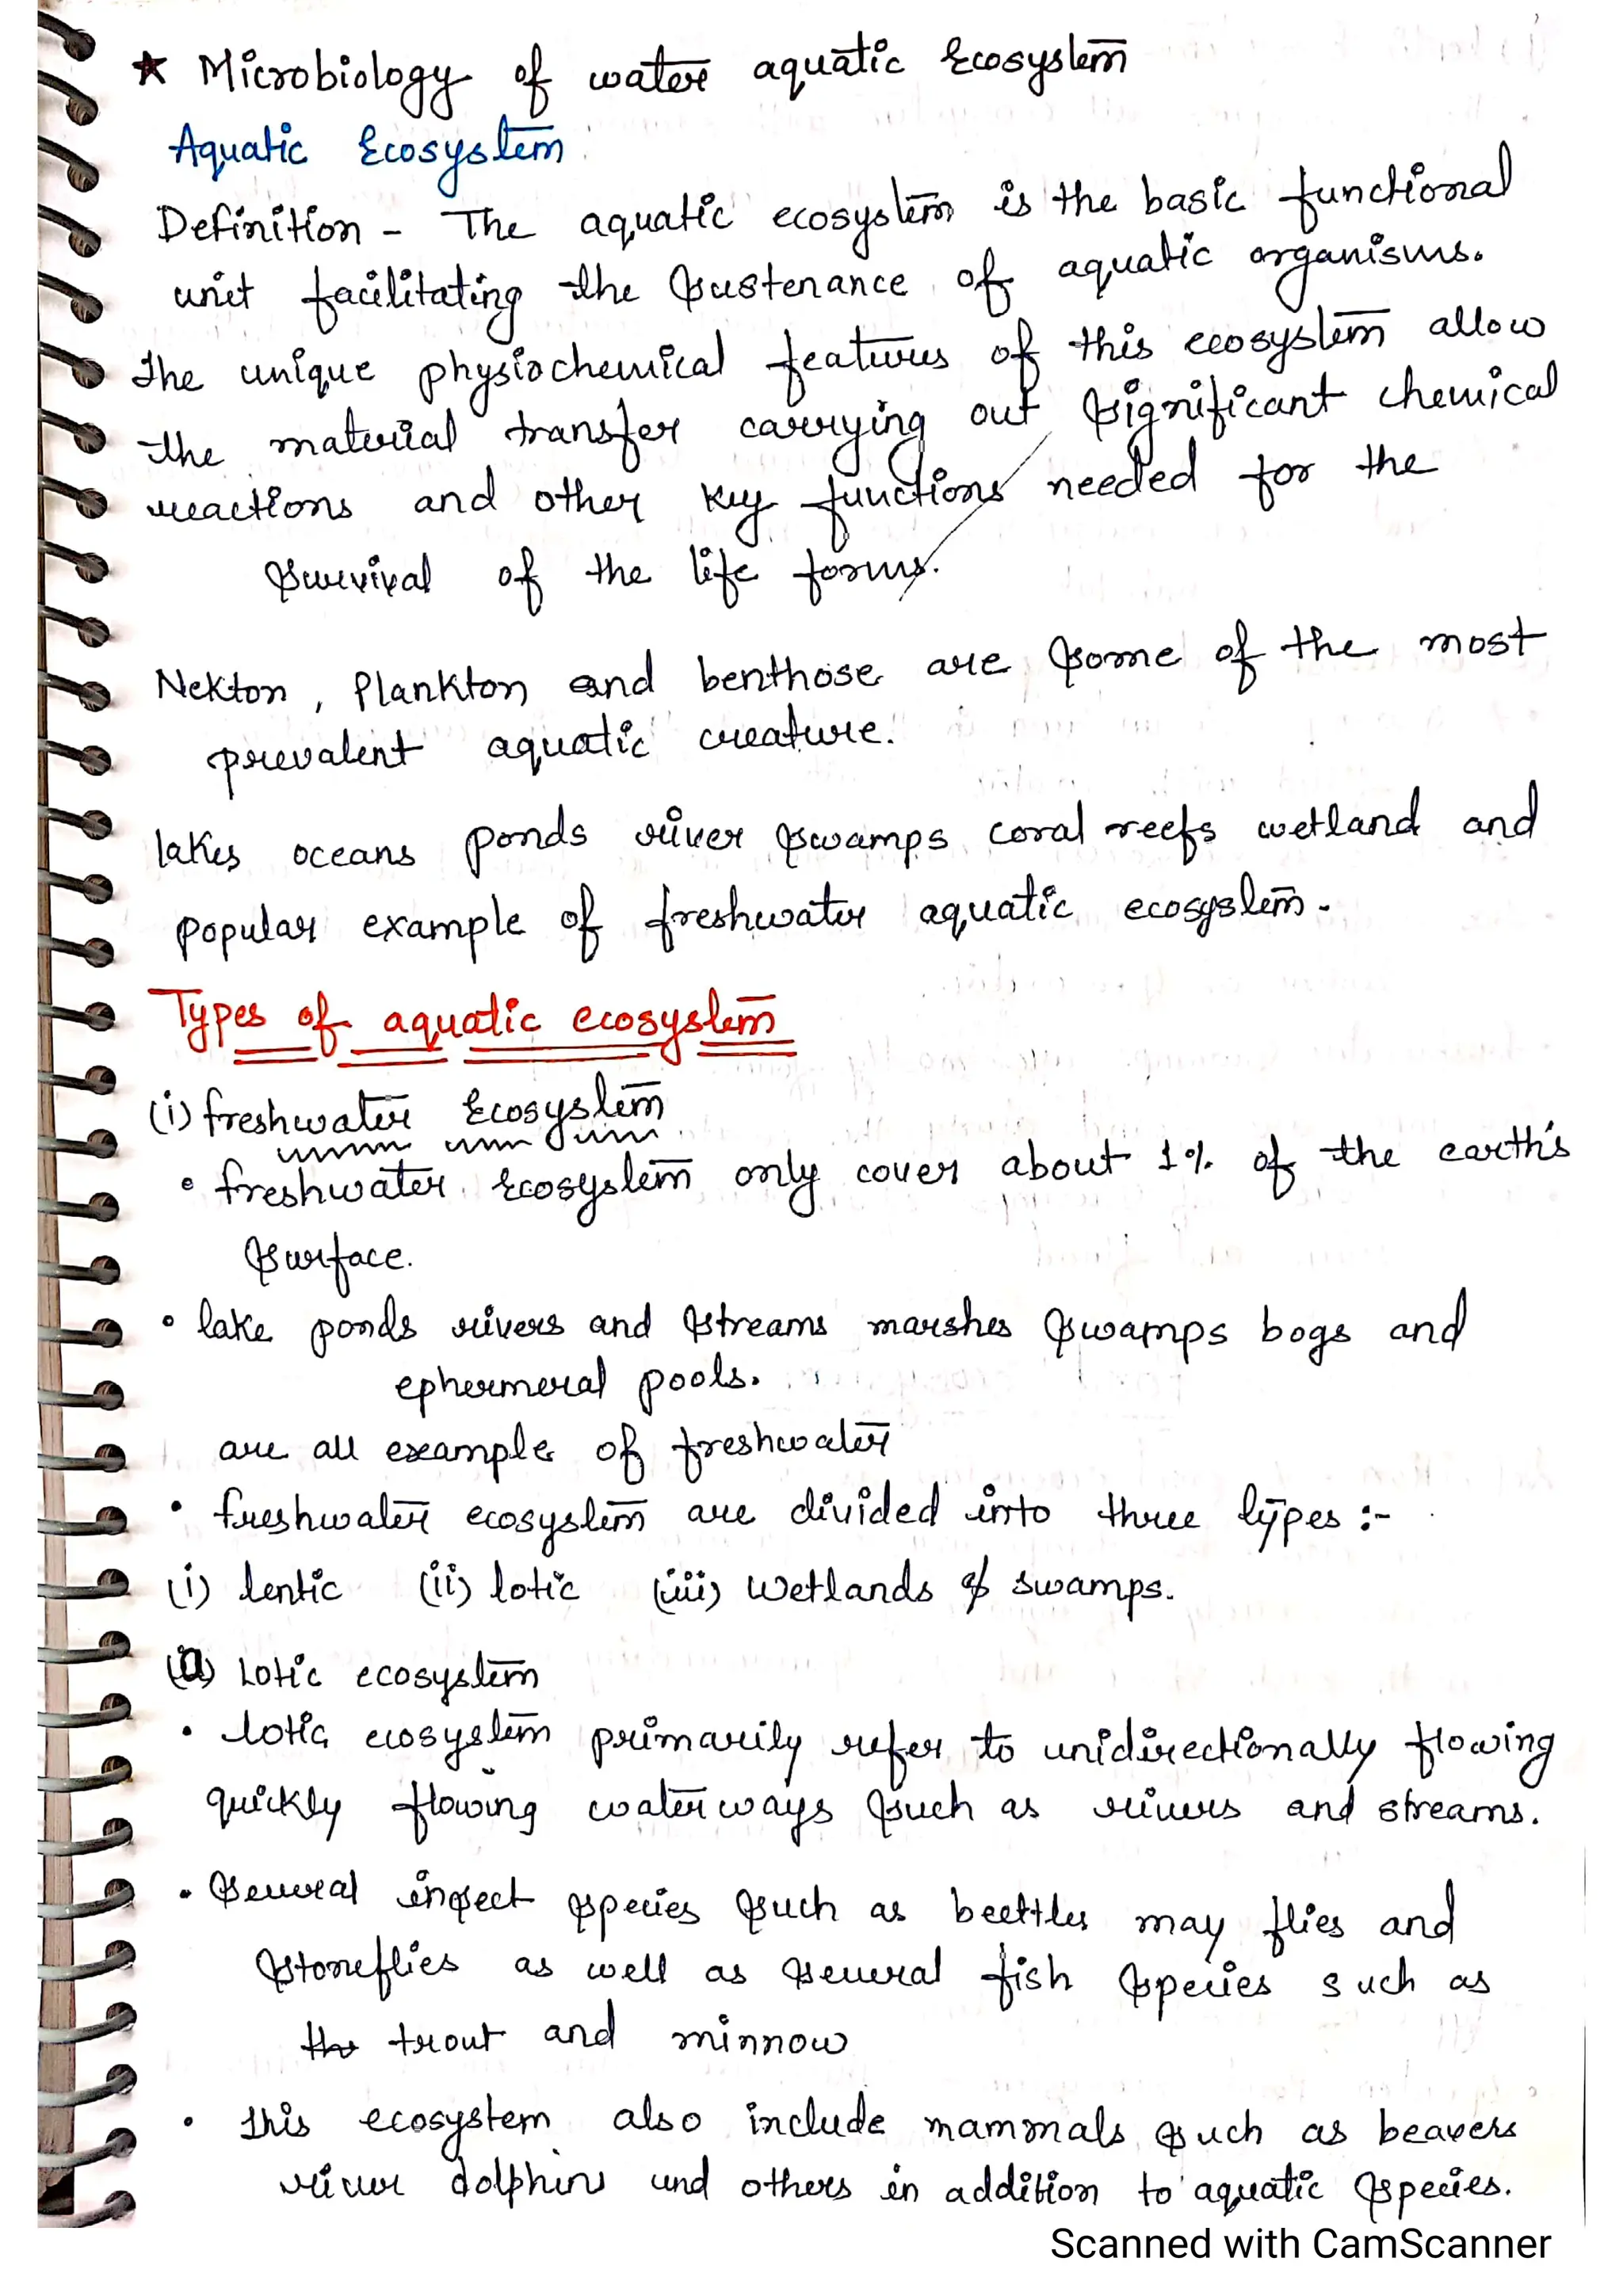 ★ Microbiology of water aquatic Ecosystem
Aquatic Ecosystem
Definition - The aquatic ecosystem is the basic functional
unit facilitating the sustenance of aquatic organisms.
The unique physiochemical features of this ecosystem allow
the material transfer carrying out significant chemical
reactions and other key functions needed for the
survival of the life forms.
Nekton, Plankton and benthose are some of the most
prevalent aquatic creature.
lakes oceans ponds river swamps coral reefs wetland and
popular example of freshwater aquatic ecosystem.
Types of aquatic ecosystem
(i) freshwater Ecosystem
• freshwater Ecosystem only cover about 1% of the earth's
surface.
• lake ponds rivers and streams marshes swamps bogs and
ephermeral pools.
are all example of freshwater
• freshwater ecosystem are divided into three types :-
(i) lentic (ii) lotic (iii) wetlands & swamps.
(a) Lotic ecosystem
• lotic ecosystem primarily refer to unidirectionally flowing
quickly flowing waterways such as rivers and streams.
• Several insect species such as beettles may flies and
stoneflies as well as several fish species such as
the trout and minnow
• This ecosystem also include mammals such as beavers
river dolphins und others in addition to aquatic species.
Scanned with CamScanner